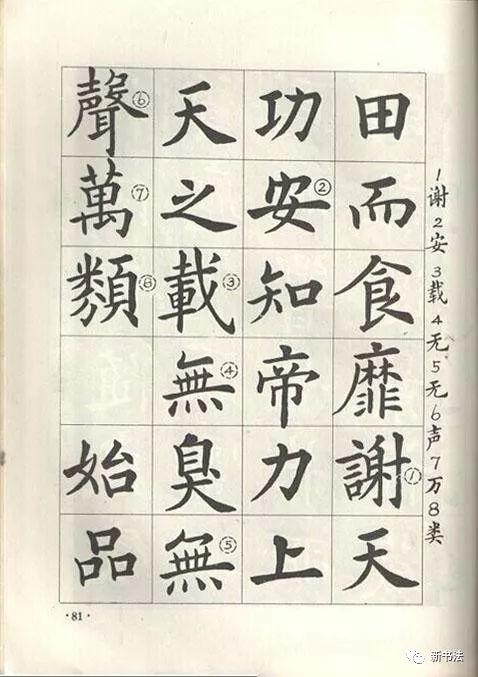 田而食靡謝①天
功安②知帝力上
天之載③無④臭無⑤
聲⑥萬⑦類⑧ 始品
1谢2安3载4无5无6声7万8类
·81·
新书法